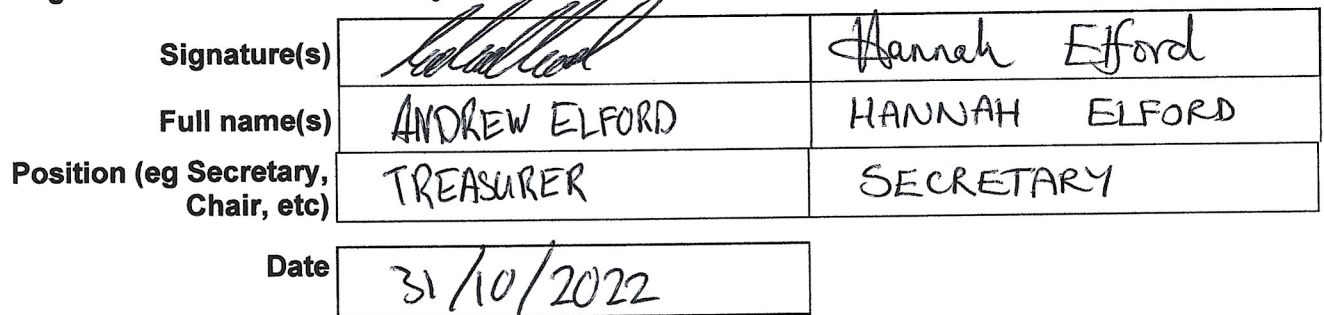 Signature(s) Hannah Elford
Full name(s) ANDREW ELFORD HANNAH ELFORD
Position (eg Secretary, TREASURER SECRETARY
Chair, etc)
Date 31/10/2022